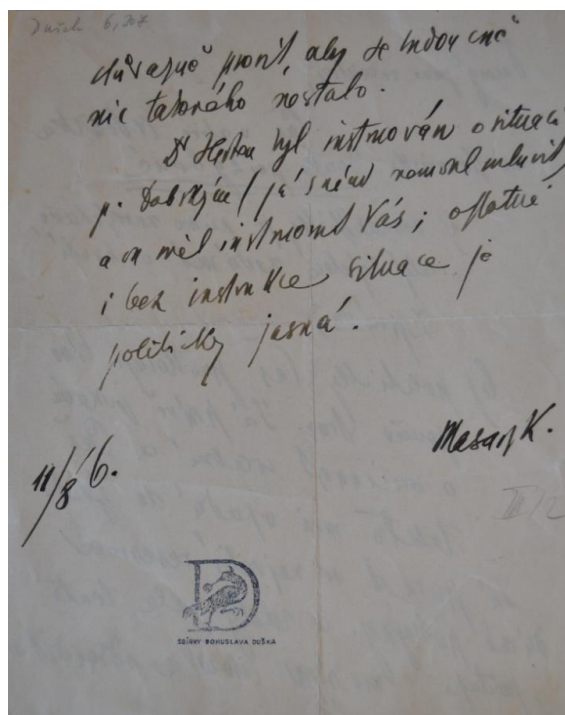 Dušek 6,204
důrazně prosit, aby se budoucně
nic takového nestalo.
Dr Herben byl instruován o situaci
p. Dobrským (já s ním nemohl mluvit)
a on měl instruovat Vás; ostatně
i bez instrukce situace je
politicky jasná.
Masaryk.
11/8 6.
III/2
D
SBÍRKY BOHUSLAVA DUŠKA